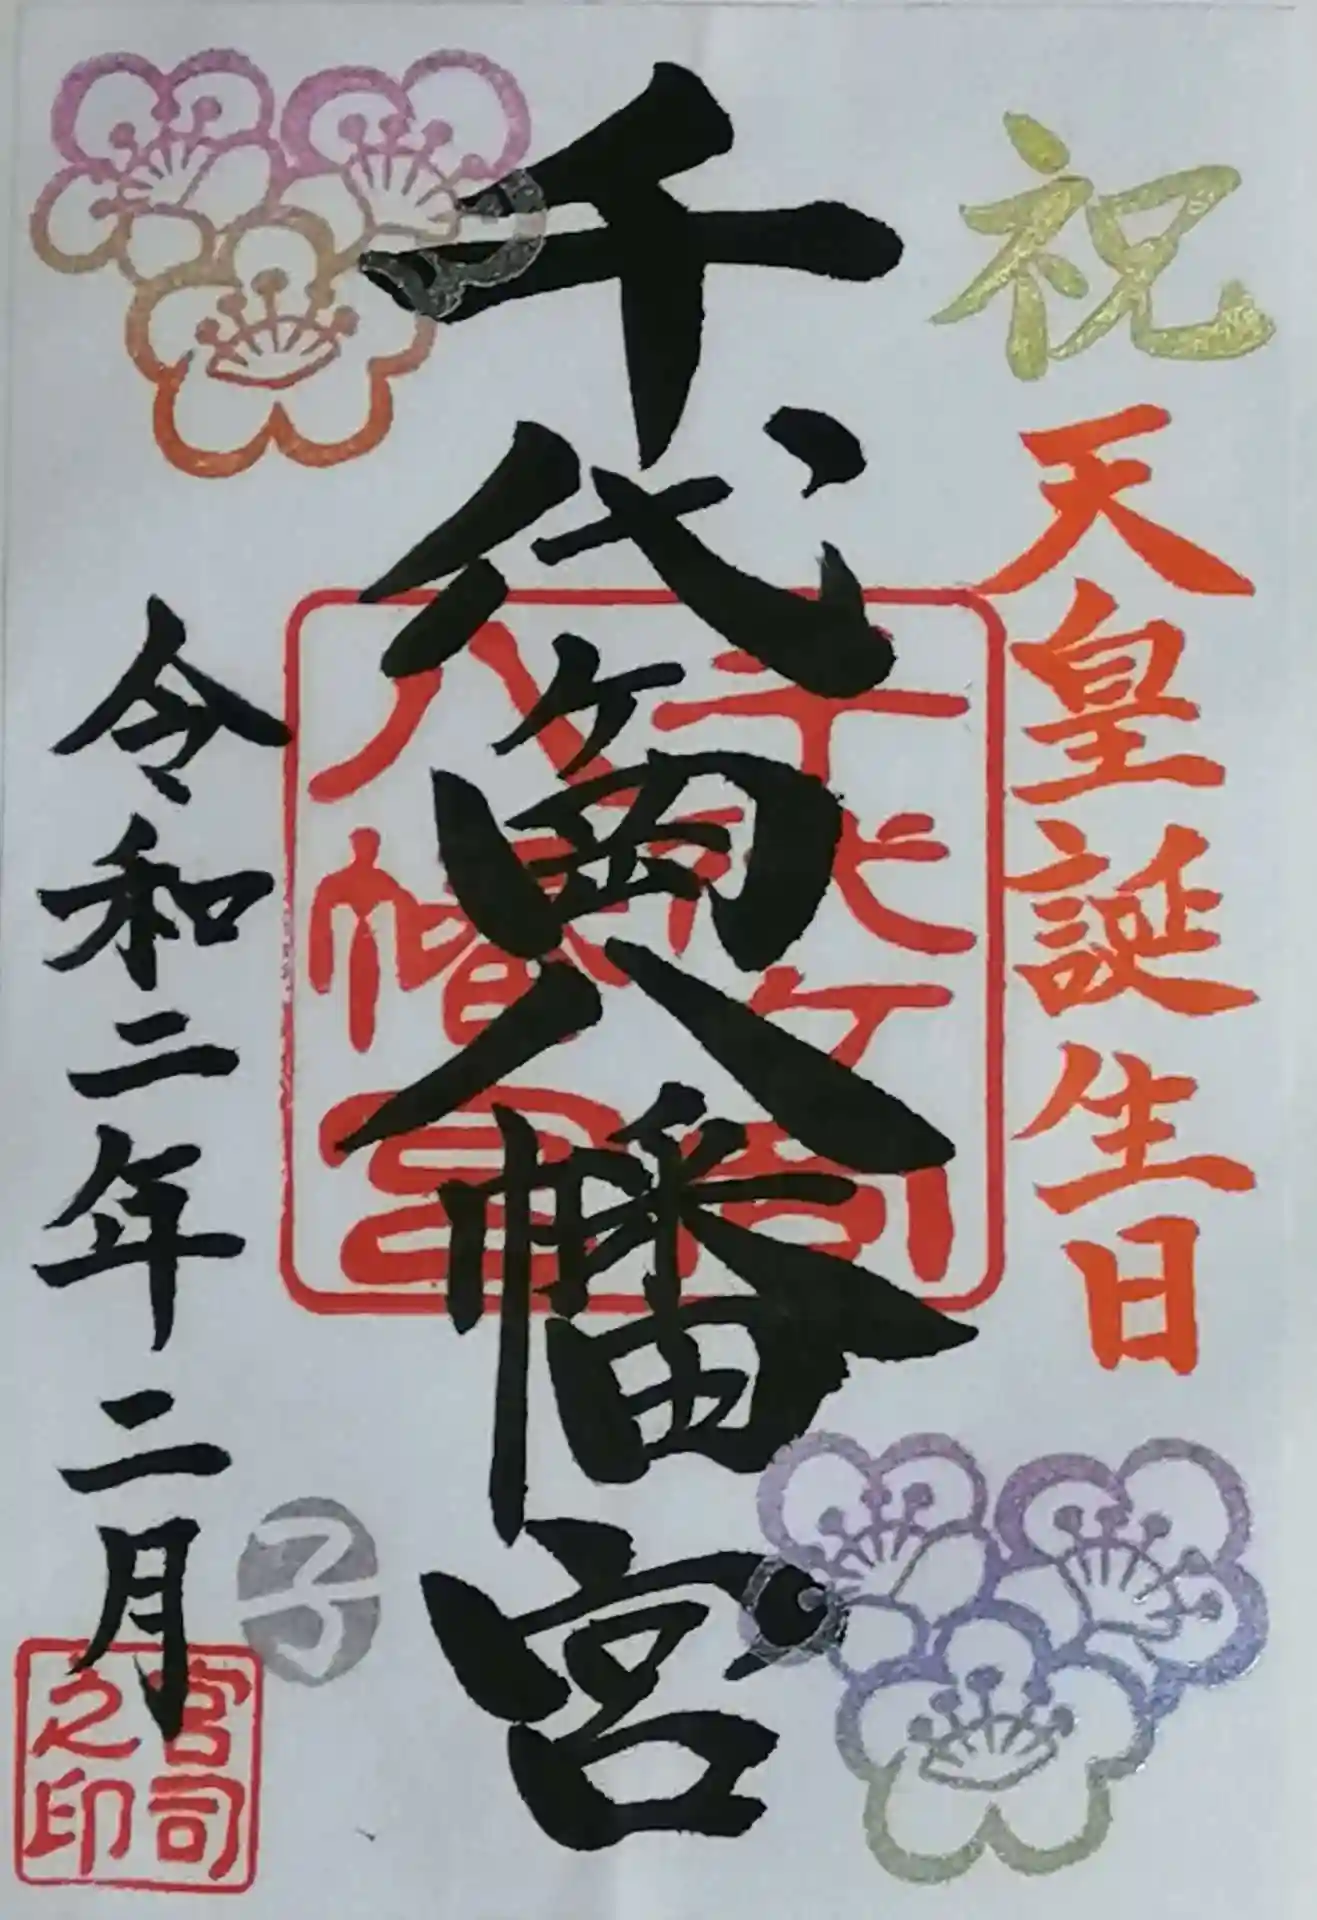 祝
天皇誕生日
千代ヶ岡八幡宮
千代ケ岡
八幡宮
令和二年二月
子
宮司之印